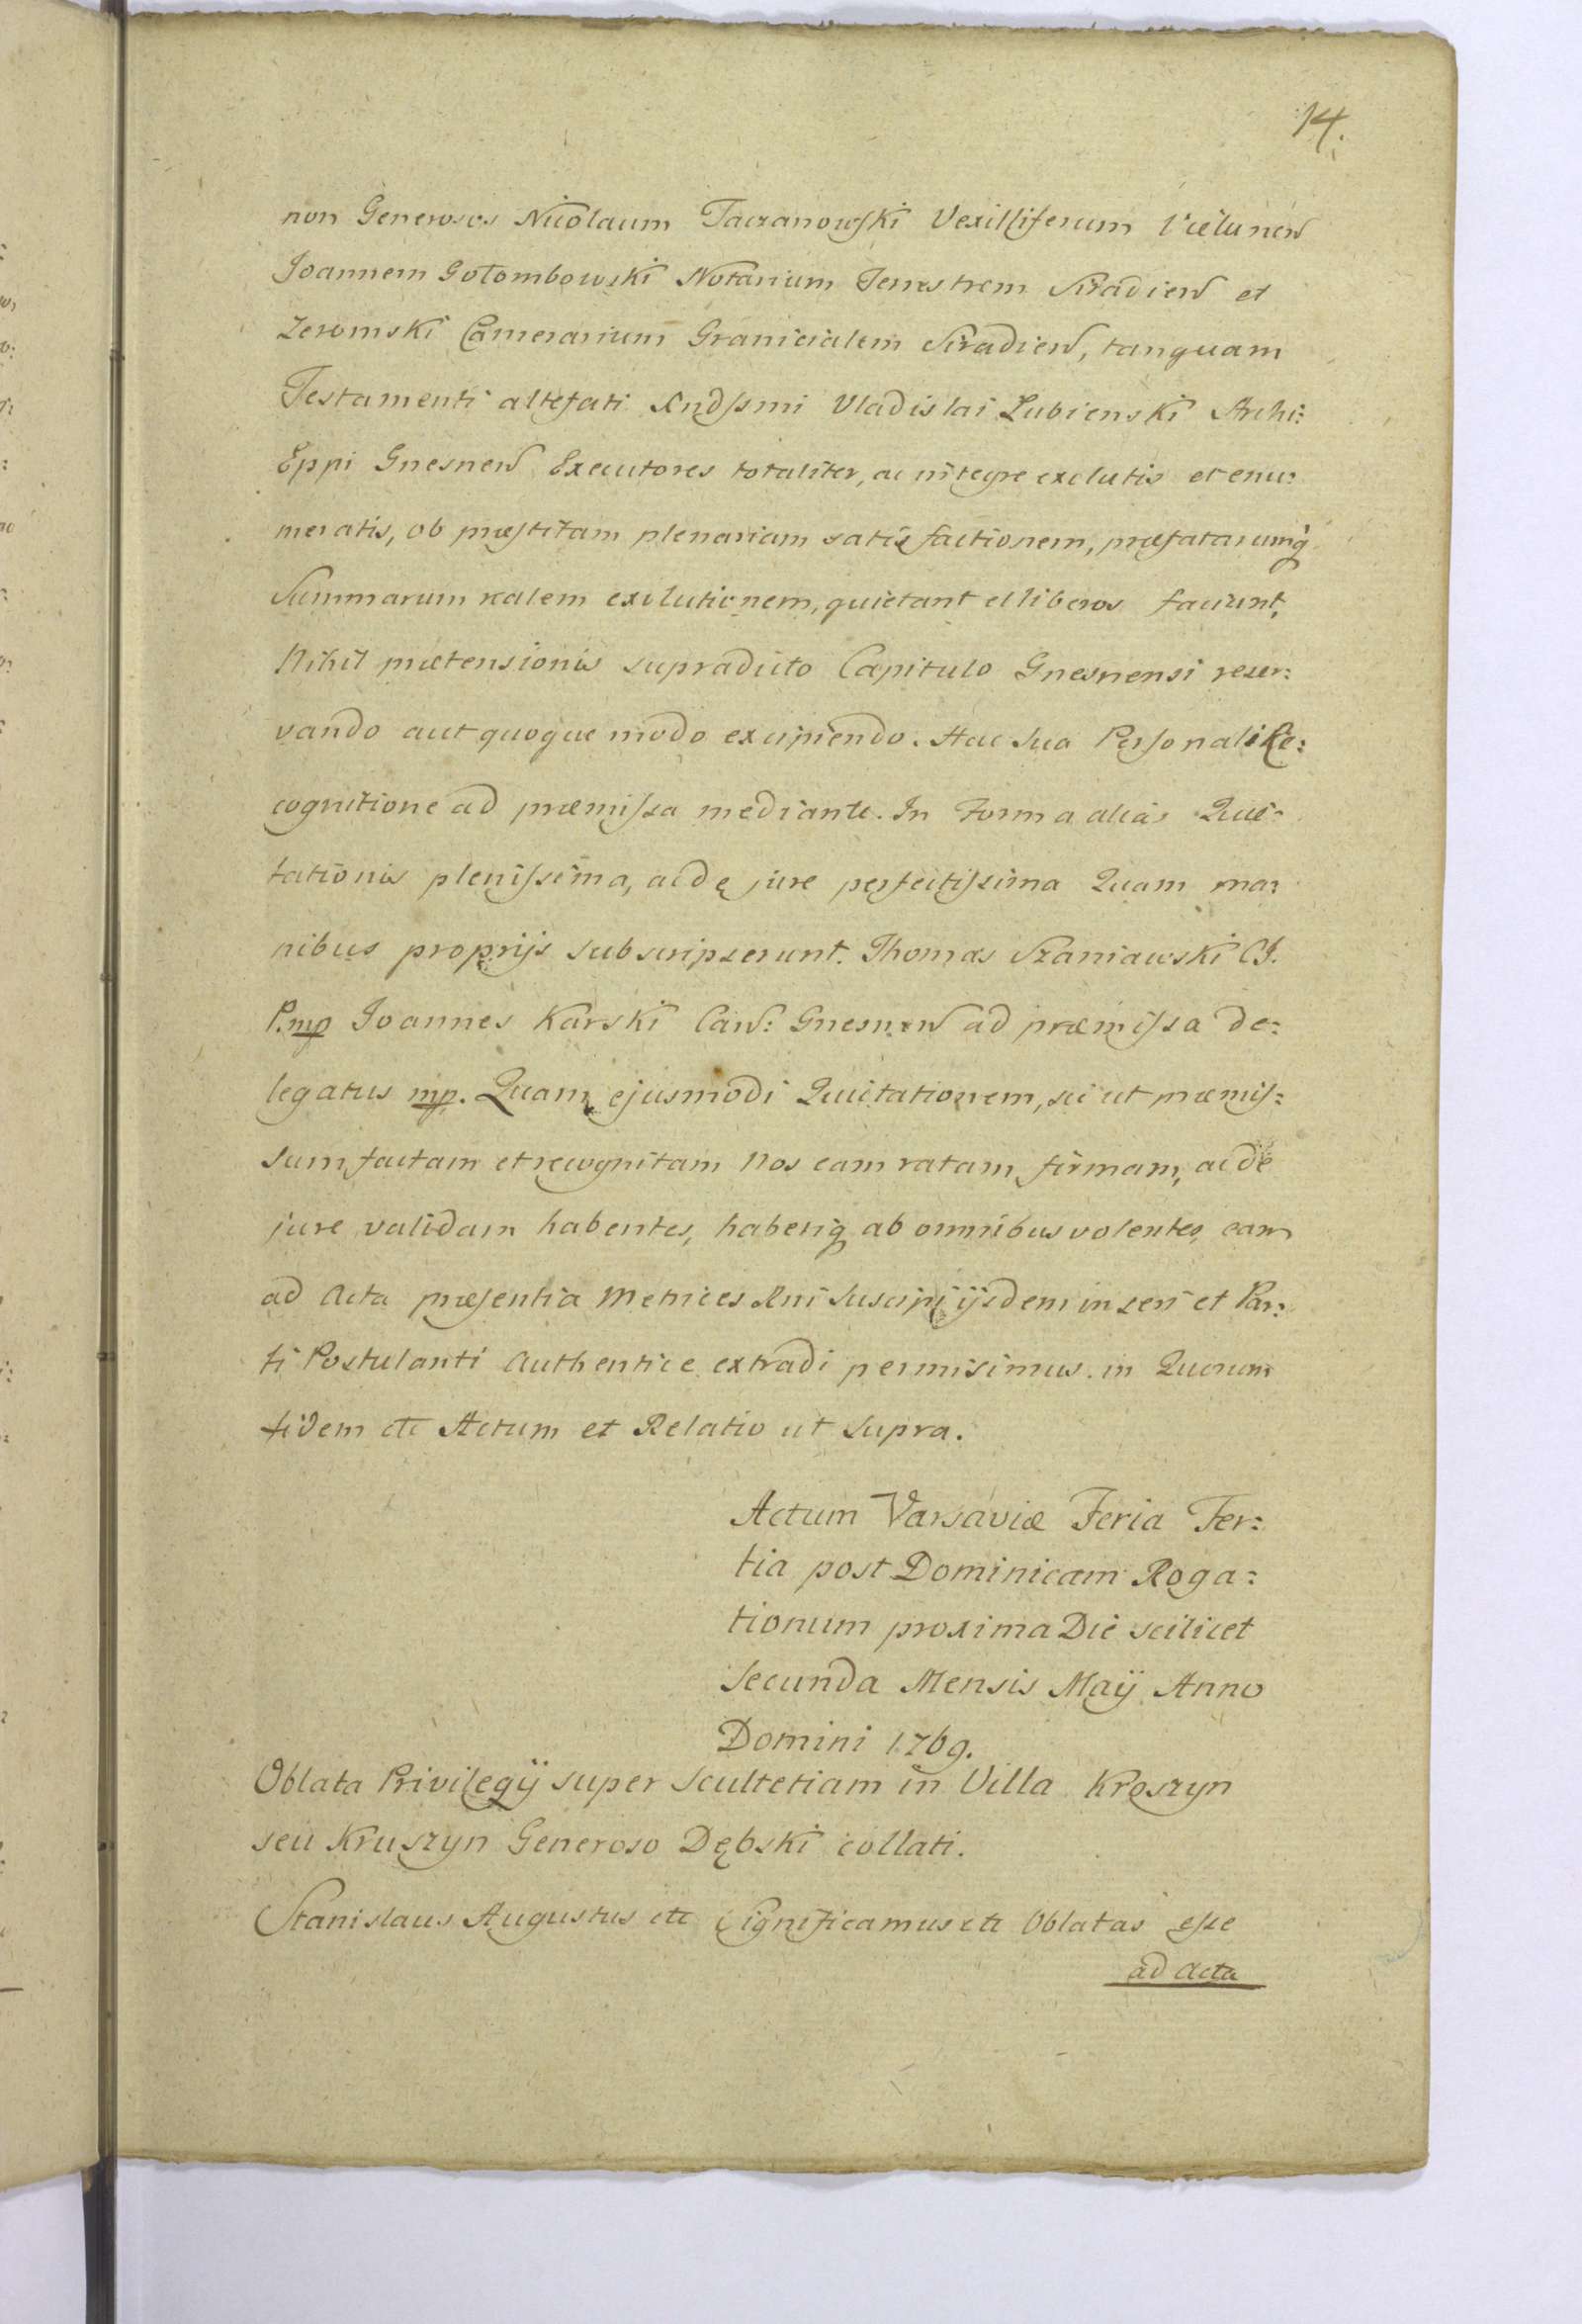 14.
non Generosos Nicolaum Taczanowski Vexilliferum Vielunen
Joannem Gołombowski Notarium Terrestrem Siradien et
Zeromski Camerarium Granicialem Siradien, tanquam
Testamenti altefati Rndssmi Vladislai Łubienski Archi:
Eppi Gnesnen Executores totaliter, ac integre exolutis et enu:
meratis, ob præstitam plenariam satisfactionem, præfatarumq
Summarum realem exolutionem, quietant et liberos faciunt,
Nihil prætensionis supradicto Capitulo Gnesnensi reser:
vando aut quoque modo excipiendo. Hac sua Personali Re:
cognitione ad præmissa mediante. In Forma alias Quie:
tationis plenissima, ac de jure perfectissima Quam ma:
nibus proprijs subscripserunt. Thomas Szaniawski CJ.
P.mp Joannes Karski Can: Gnesnen ad præmissa de:
legatus mp. Quam ejusmodi Quietationem, sic ut præmis:
sum factam et recognitam Nos eam ratam, firmam, ac de
jure validam habentes, haberiq ab omnibus volentes, eam
ad Acta præsentia Metrices Rni suscipi ijsdem inseri et Par:
ti Postulanti Authentice extradi permisimus. in Quorum
fidem etc Actum et Relatio ut supra.
Actum Varsaviæ Feria Ter:
tia post Dominicam Roga:
tionum proxima Die scilicet
Secunda Mensis Maÿ Anno
Domini 1769.
Oblata Privilegÿ super Scultetiam in Villa Kroszyn
seu Kruszyn Generoso Dębski collati.
Stanislaus Augustus etc Significamus etc Oblatas esse
ad Acta